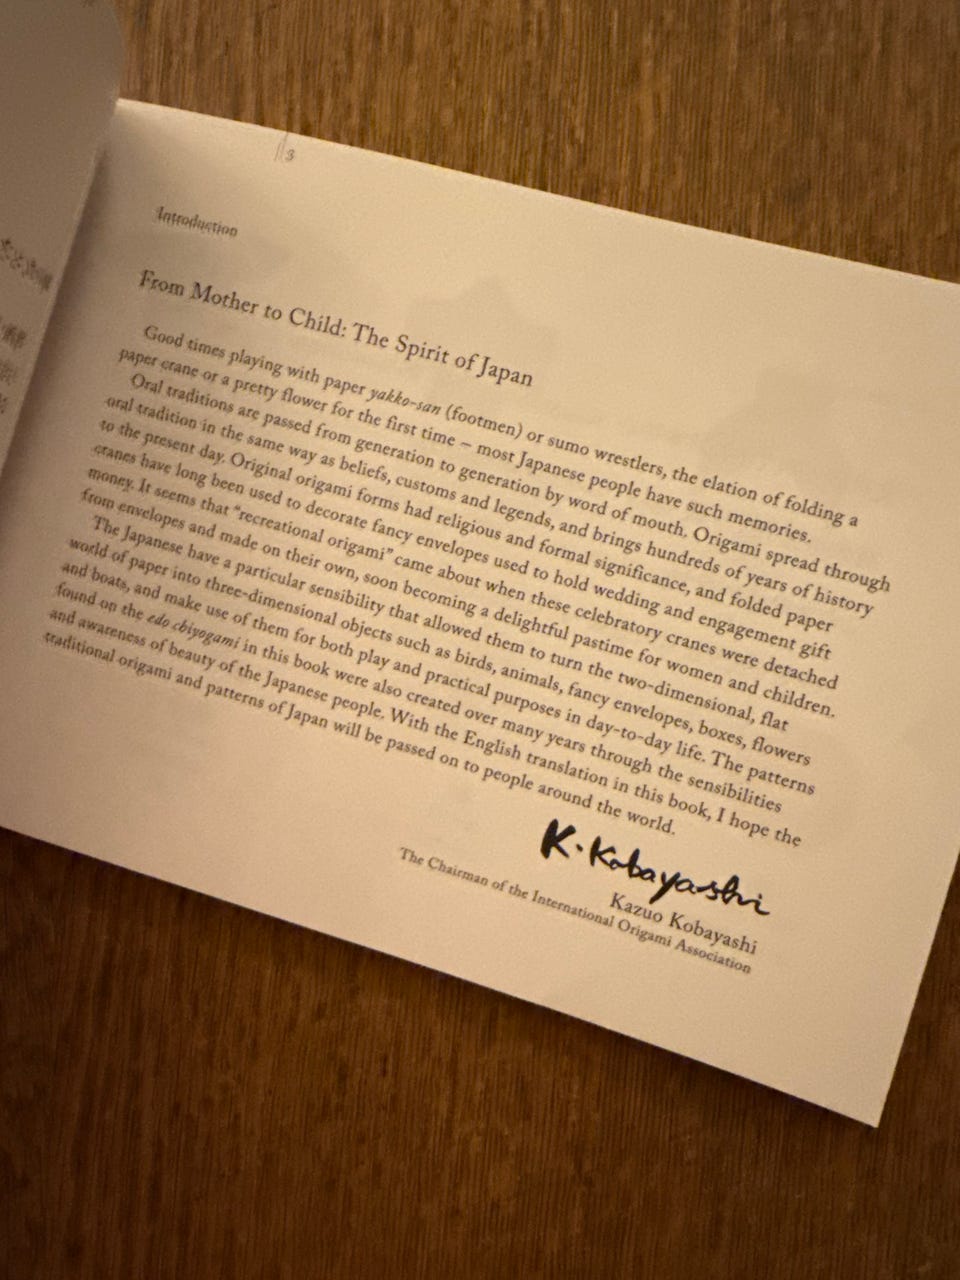 3
Introduction
From Mother to Child: The Spirit of Japan
Good times playing with paper yakko-san (footmen) or sumo wrestlers, the elation of folding a
paper crane or a pretty flower for the first time – most Japanese people have such memories.
Oral traditions are passed from generation to generation by word of mouth. Origami spread through
oral tradition in the same way as beliefs, customs and legends, and brings hundreds of years of history
to the present day. Original origami forms had religious and formal significance, and folded paper
cranes have long been used to decorate fancy envelopes used to hold wedding and engagement gift
money. It seems that “recreational origami” came about when these celebratory cranes were detached
from envelopes and made on their own, soon becoming a delightful pastime for women and children.
The Japanese have a particular sensibility that allowed them to turn the two-dimensional, flat
world of paper into three-dimensional objects such as birds, animals, fancy envelopes, boxes, flowers
and boats, and make use of them for both play and practical purposes in day-to-day life. The patterns
found on the edo chiyogami in this book were also created over many years through the sensibilities
and awareness of beauty of the Japanese people. With the English translation in this book, I hope the
traditional origami and patterns of Japan will be passed on to people around the world.
K. Kobayashi
Kazuo Kobayashi
The Chairman of the International Origami Association